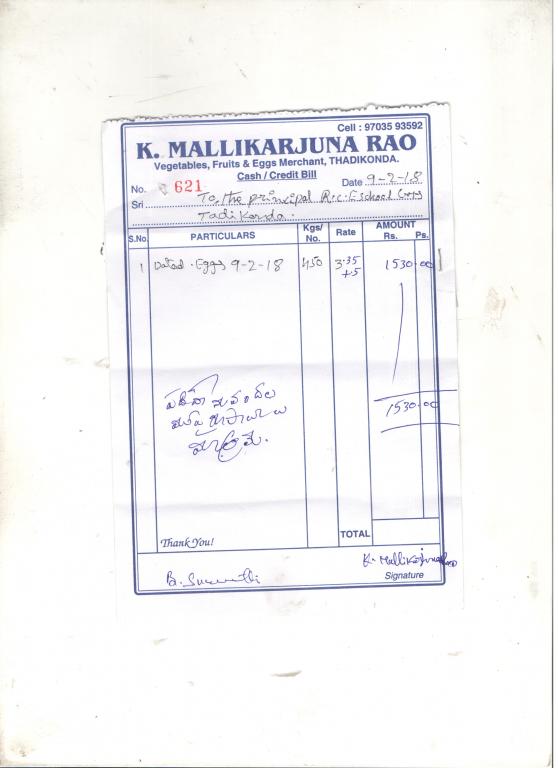 Cell : 97035 93592
K. MALLIKARJUNA RAO
Vegetables, Fruits & Eggs Merchant, THADIKONDA.
Cash / Credit Bill
No. 621 Date 9-2-18
Sri To, the principal
Tadikonda.
S.No. PARTICULARS Kgs/ No. Rate AMOUNT Rs. Ps.
1 Dated. Eggs 9-2-18 450 3.35 1530.00
+5
1530.00
పదిహేను వందల
ముప్పై రూపాయలు
మాత్రమే.
TOTAL
Thank You!
K. Mallikarjuna Rao
B.
Signature